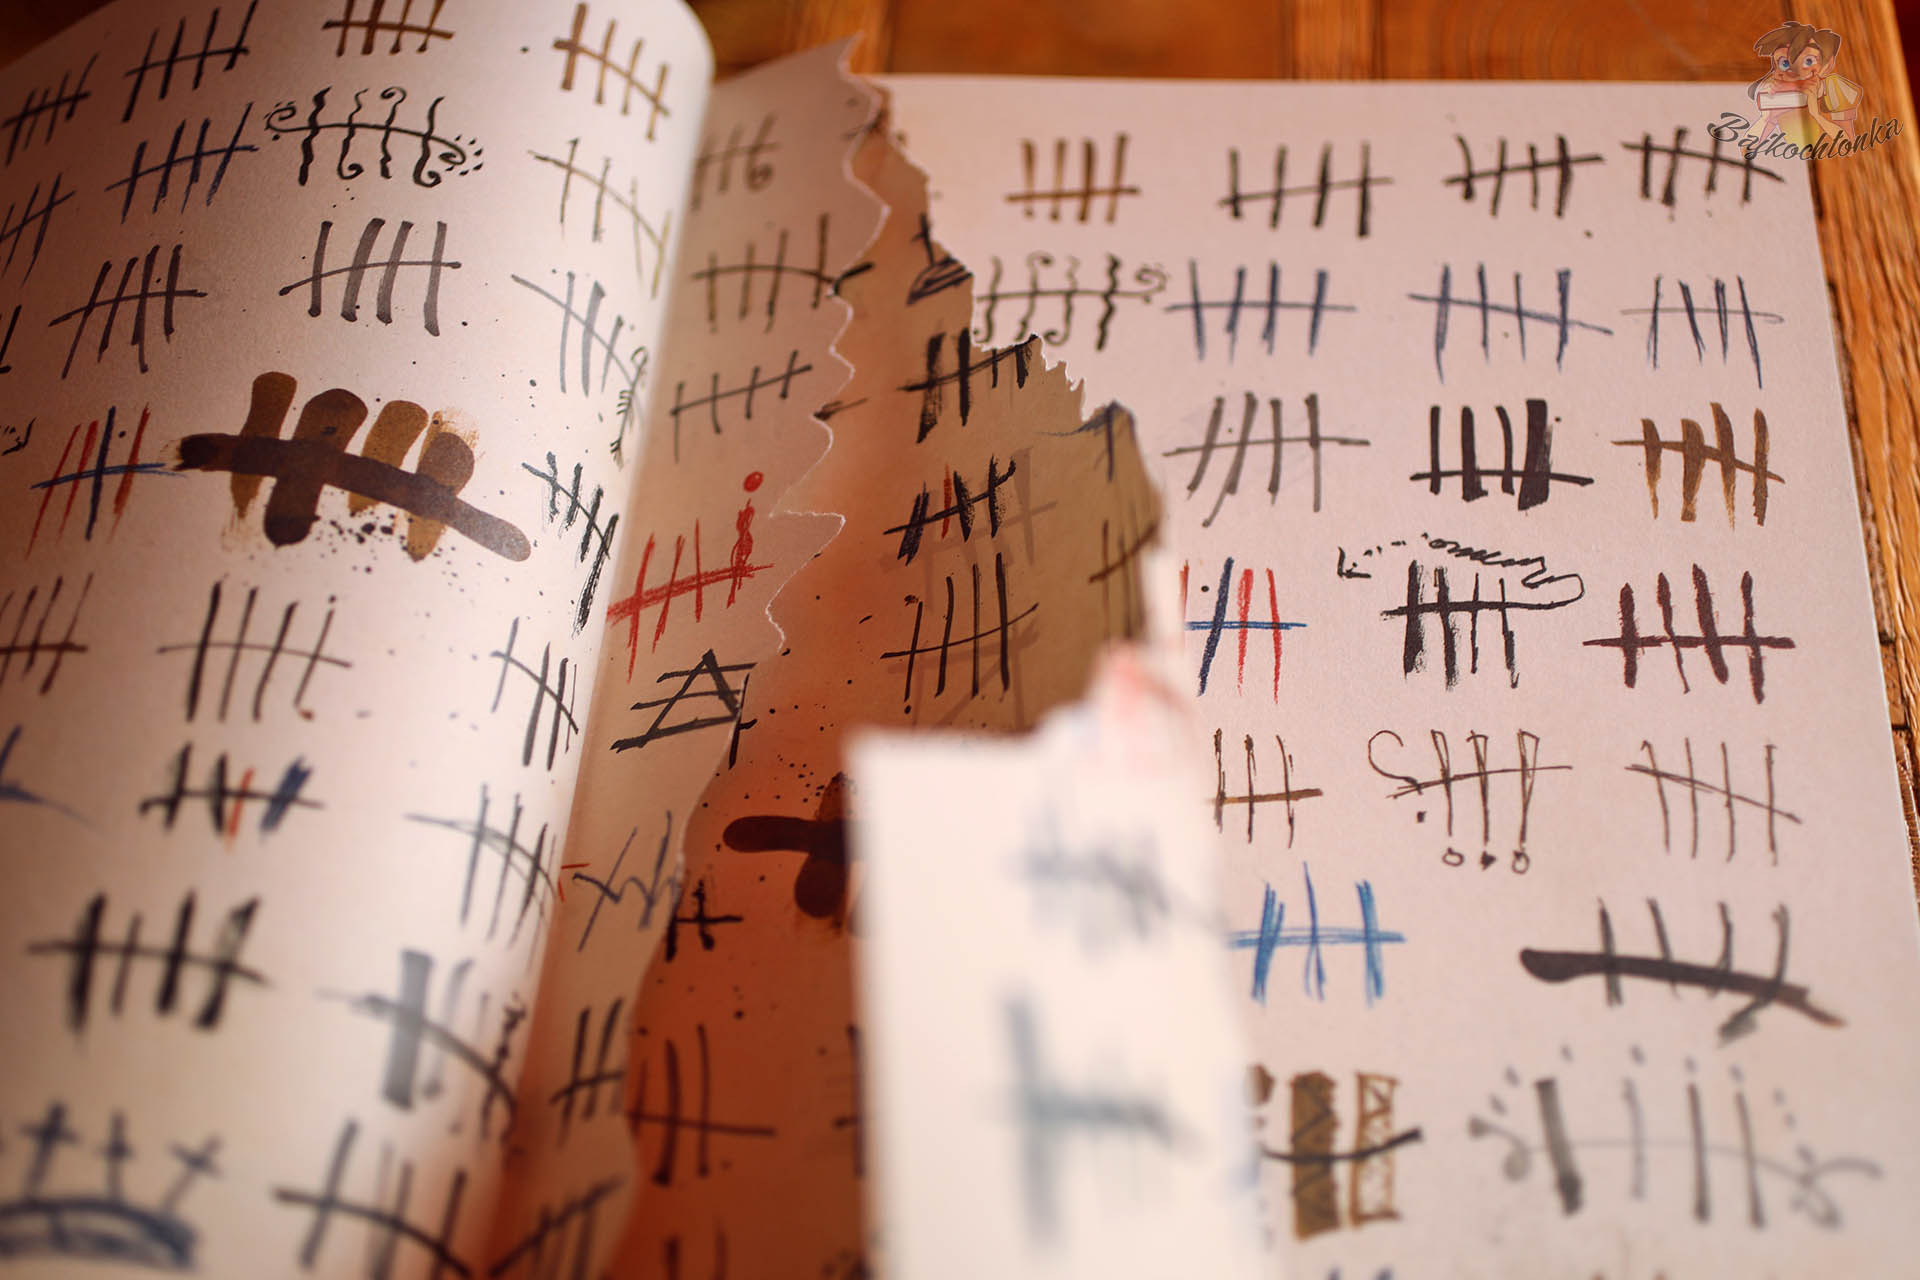 Bajkochłonka